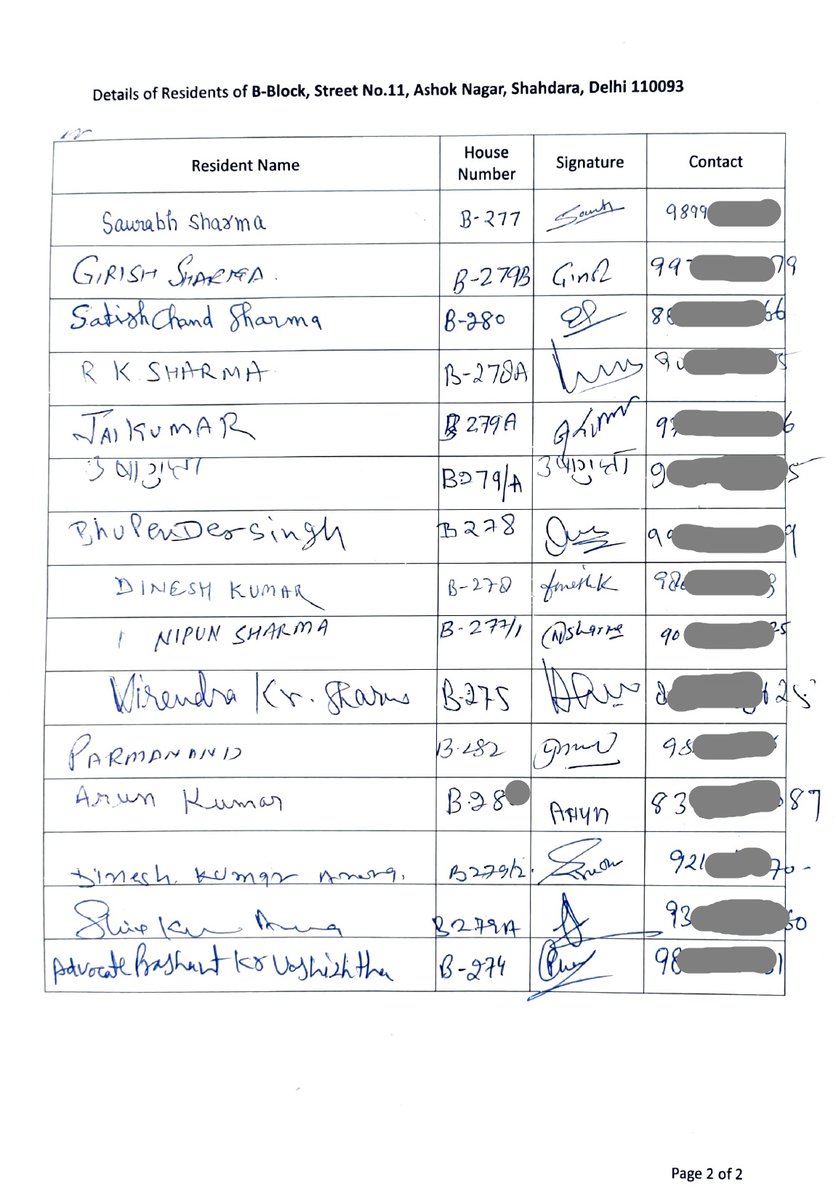 Details of Residents of B-Block, Street No.11, Ashok Nagar, Shahdara, Delhi 110093
Resident Name House Number Signature Contact
Saurabh Sharma B-277 9899
GIRISH SHARMA. B-279B 99 79
Satish Chand Sharma B-280 8 66
R K SHARMA B-278A 90 5
JAI KUMAR B 279A 9 6
B279/A 9 5
Bhupender singh B278 99 9
DINESH KUMAR B-278 Dinesh K 98
NIPUN SHARMA B-277/1 NSharma 90 25
Virendra Kr. Sharma B-275 25
PARMANAND B-282 98
Arun Kumar B-28 Arun 83 87
Dinesh Kumar Arora. B279/2. 921 70-
Shiv Kr Arora B279A 93 60
Advocate Prashant Kr Vashishtha B-274 98 1
Page 2 of 2